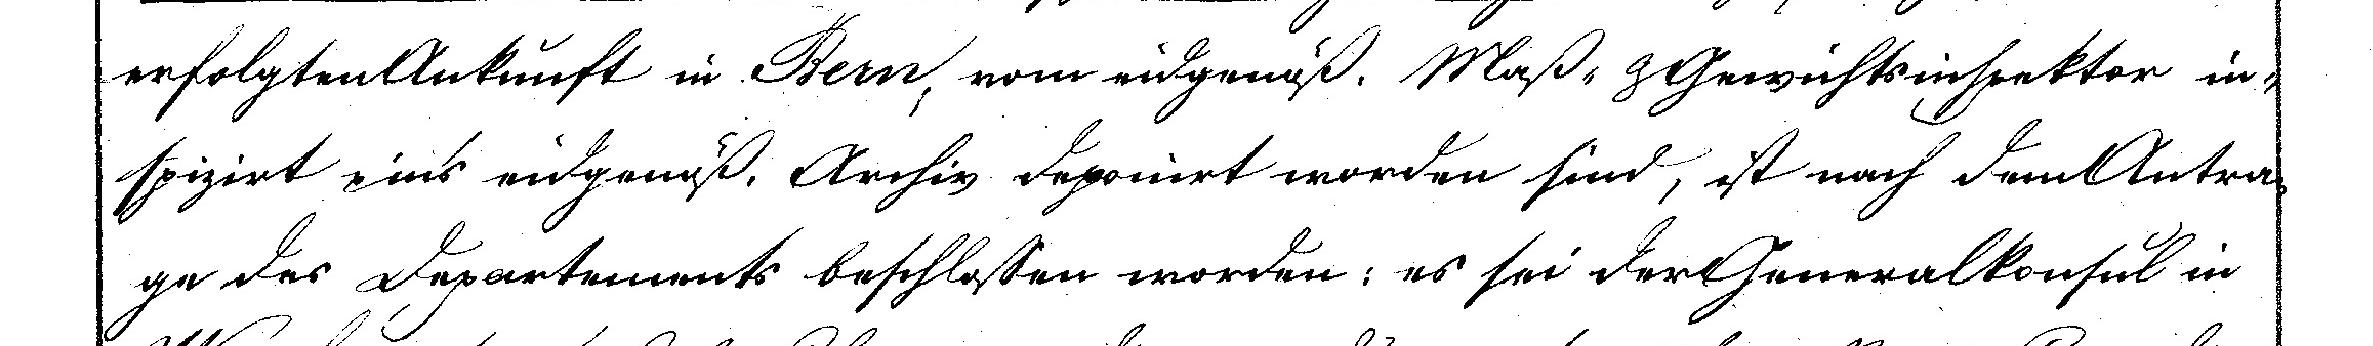 erfolgten Ankunft in Bern, vom eidgenöß. Maß- & Gewichtsinspektor in-
spizirt & in's eidgenöß. Archiv deponirt worden sind, ist nach dem Antra-
ge des Departements beschlossen worden: es sei der Generalkonsul in